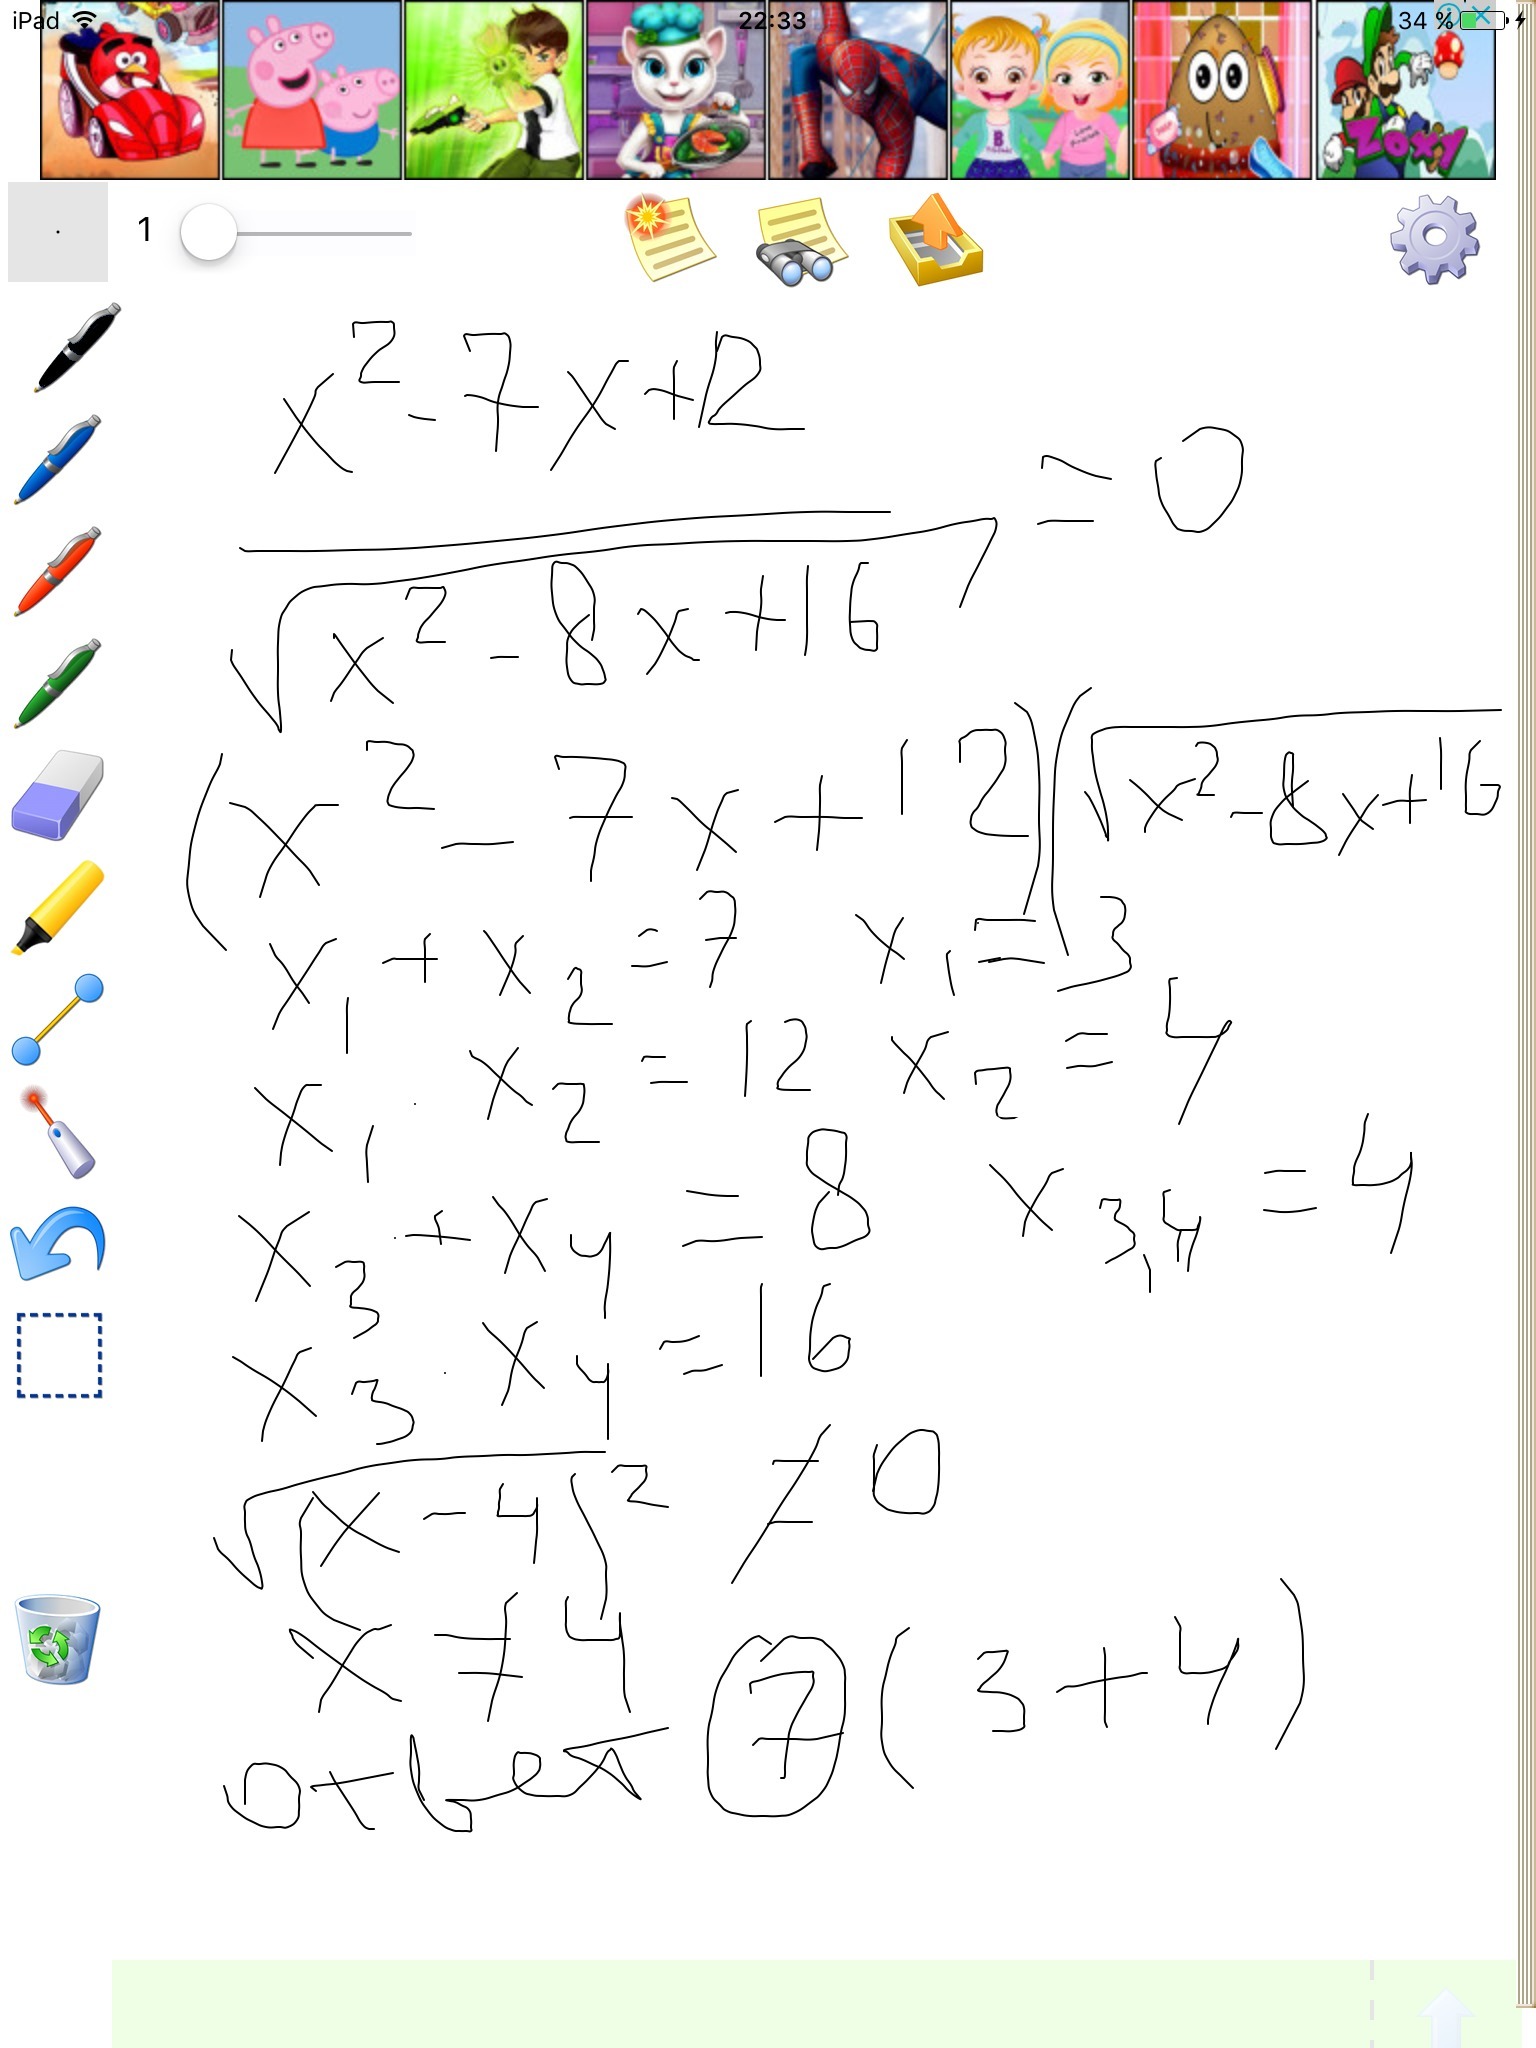 iPad 22:33 34 %
B
Zoxy
1
x² - 7x + 12
= 0
√x² - 8x + 16
(x² - 7x + 12)(√x² - 8x + 16
x₁ + x₂ = 7 x₁ = 3
x₁ · x₂ = 12 x₂ = 4
x₃ + x₄ = 8 x₃,₄ = 4
x₃ · x₄ = 16
√(x - 4)² ≠ 0
x ≠ 4
ответ 7 (3 + 4)